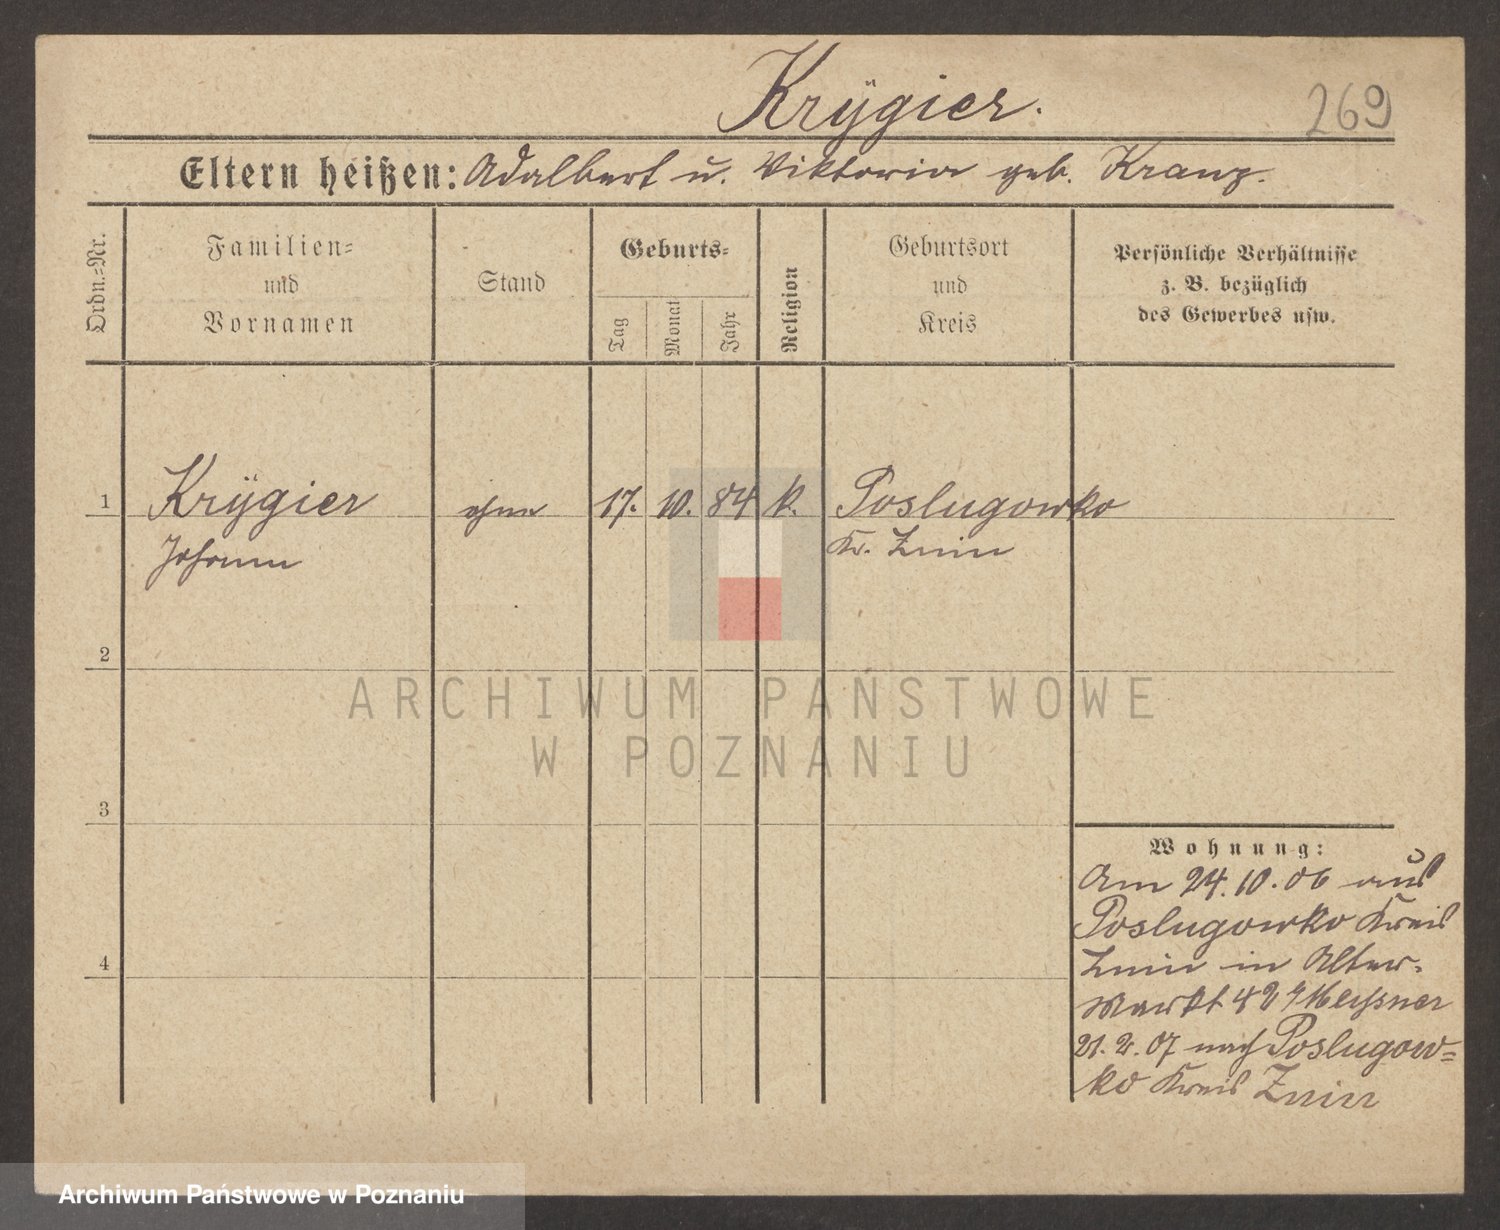 Krÿgier.
269
Eltern heißen: Adalbert u. Viktoria geb. Kranz.
Ordn.=Nr.
Familien=
und
Vornamen
Stand
Geburts=
Tag
Monat
Jahr
Religion
Geburtsort
und
Kreis
Persönliche Verhältnisse
z. B. bezüglich
des Gewerbes usw.
1 Krÿgier ohne 17. 10. 84 k. Poslugowko
Johann Kr. Znin
2
ARCHIWUM PAŃSTWOWE
W POZNANIU
3
Wohnung:
Am 24.10.06 aus
Poslugowko Kreis
4
Znin in Alter-
Markt 42 Meissner
21.2.07 nach Poslugow=
ko Kreis Znin
Archiwum Państwowe w Poznaniu